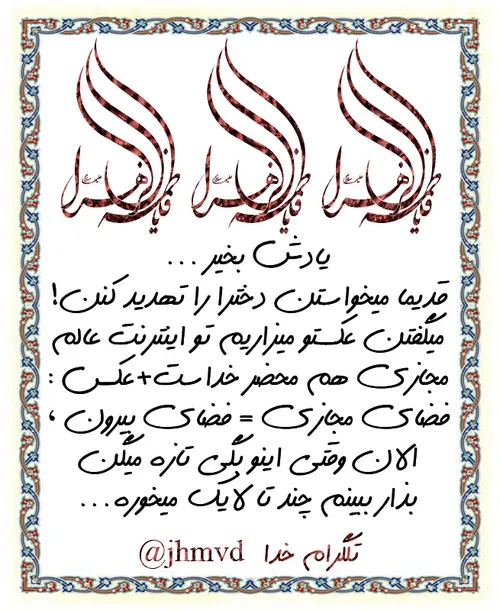 یا فاطمة الزهرا یا فاطمة الزهرا یا فاطمة الزهرا
یادش بخیر ...
قدیما میخواستن دخترا را تهدید کنن!
میگفتن عکستو میزاریم تو اینترنت عالم
مجازی هم محضر خداست+عکس :
فضای مجازی = فضای بیرون ،
الان وقتی اینو بگی تازه میگن
بذار ببینم چند تا لایک میخوره...
تلگرام خدا @jhmvd